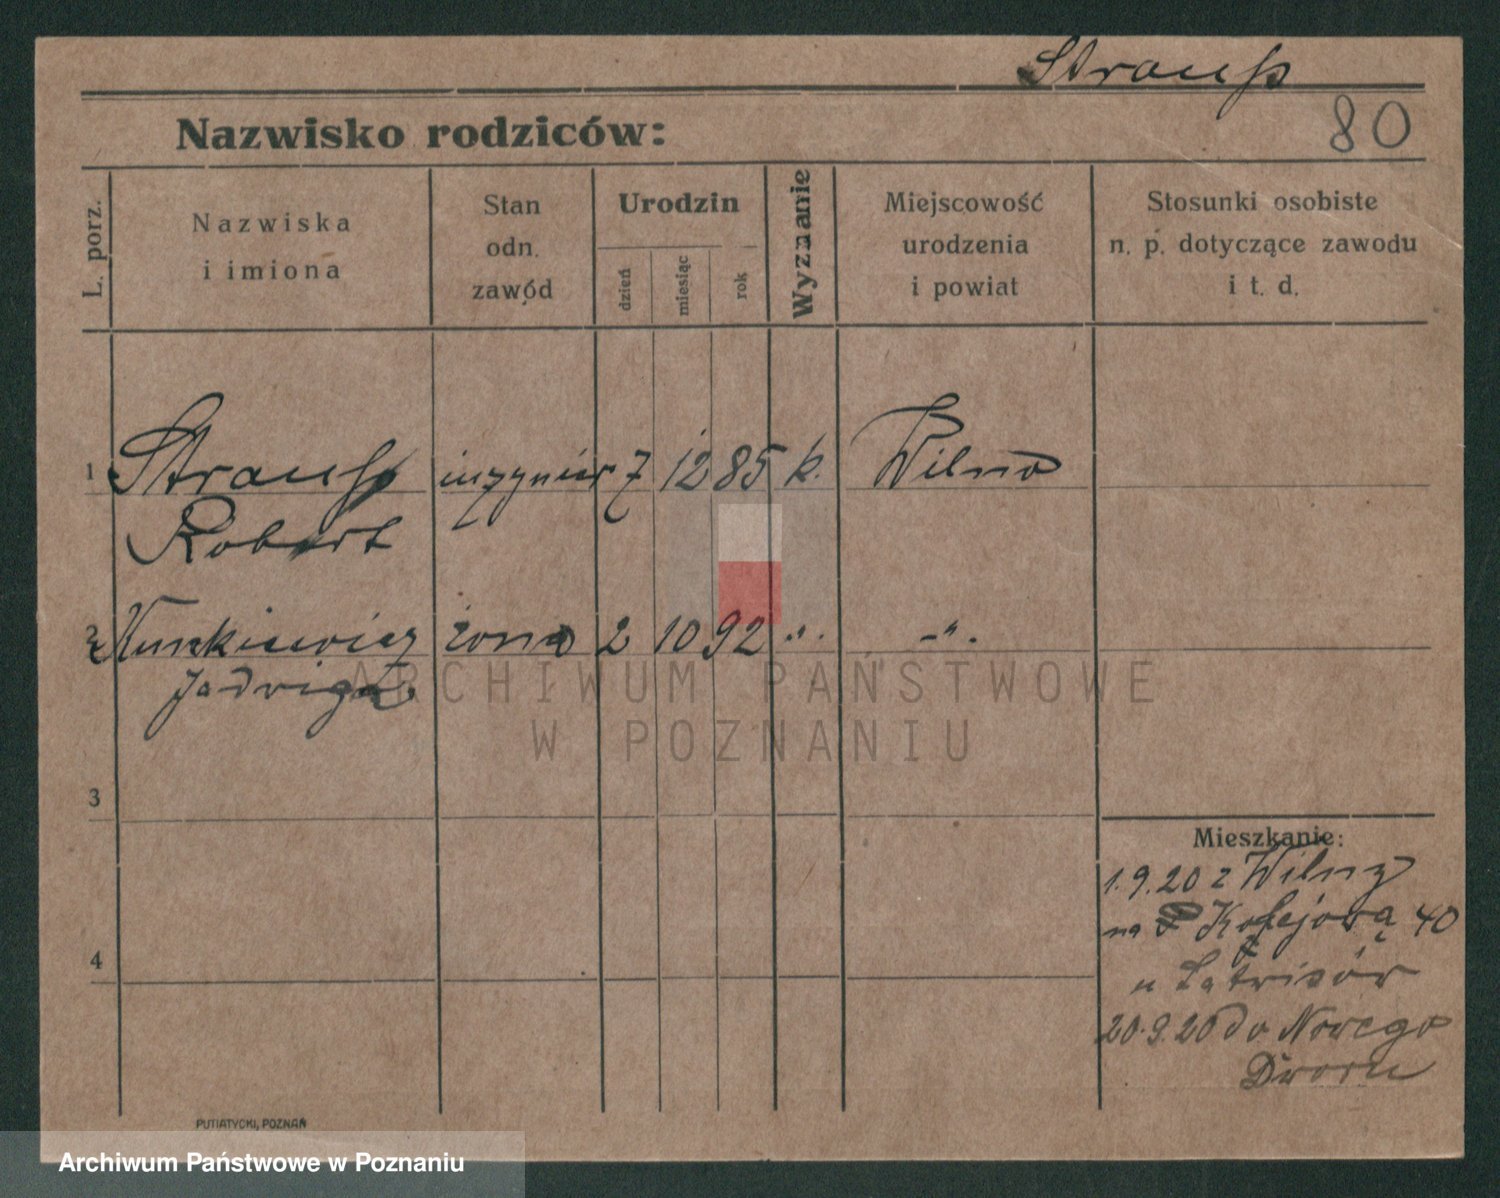 Strauß
80
Nazwisko rodziców:
L. porz.
Nazwiska
i imiona
Stan
odn.
zawód
Urodzin
dzień
miesiąc
rok
Wyznanie
Miejscowość
urodzenia
i powiat
Stosunki osobiste
n. p. dotyczące zawodu
i t. d.
1 Strauß inżynier 7 12 85 k. Wilno
Robert
2 żona 2 10 92 -"- -"-
Jadwiga
3
ARCHIWUM PAŃSTWOWE
W POZNANIU
Mieszkanie:
1.9.20 z Wilny
na Kolejową 40
u
4
20.9.20 do Nowego
Dworu
PUTIATYCKI, POZNAŃ
Archiwum Państwowe w Poznaniu